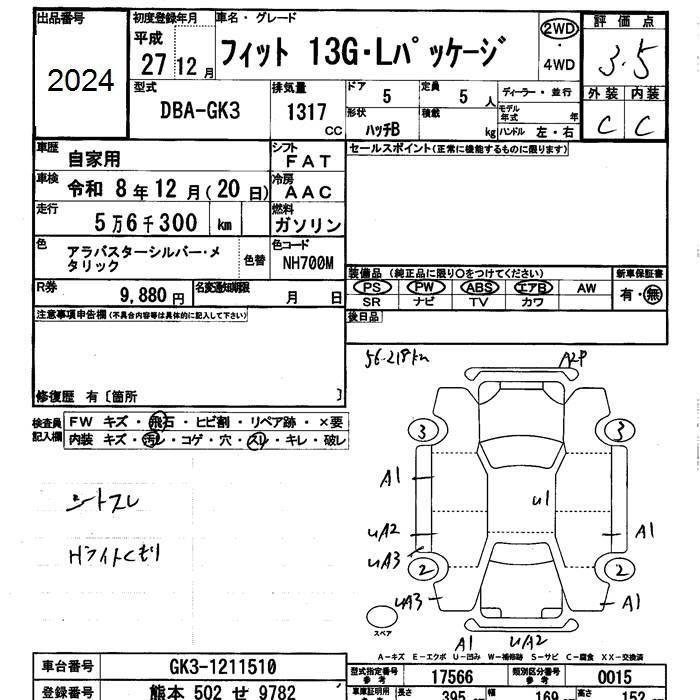 出品番号
2024
初度登録年月
平成
27 12 月
車名・グレード
フィット 13G・Lパッケージ
2WD
・
4WD
評価点
3.5
外装 内装
C C
型式
DBA-GK3
排気量
1317
CC
ドア
5
定員
5 人
形状
ハッチB
積載
kg
ディーラー・並行
モデル年式 年
ハンドル 左・右
車歴
自家用
シフト
FAT
車検
令和 8 年 12 月(20 日)
冷房
AAC
走行
5 万 6 千 300 km
燃料
ガソリン
色
アラバスターシルバー・メ
タリック
色替
色コード
NH700M
R券
9,880 円
名変通知期限
月 日
セールスポイント(正常に機能するものに限ります)
装備品 (純正品に限り○をつけてください)
新車保証書
PS PW ABS エアB AW
SR ナビ TV カワ
有・無
後日品
注意事項申告欄(不具合内容等は具体的に記入して下さい)
修復歴 有〔箇所 〕
検査員
記入欄
FW キズ・飛石・ヒビ割・リペア跡・×要
内装 キズ・汚レ・コゲ・穴・スレ・キレ・破レ
シートスレ
Hライトくもり
56.218km
A2P
3
3
A1
U1
UA2
A1
UA3
2
2
UA3
A1
スペア
A1
UA2
A-キズ E-エクボ U-凹み W-補修跡 S-サビ C-腐食 XX-交換済
車台番号
GK3-1211510
登録番号
熊本 502 せ 9782
型式指定番号
参考
17566
類別区分番号
参考
0015
車庫証明用
参考
長さ 395 cm
幅 169 cm
高さ 152 cm